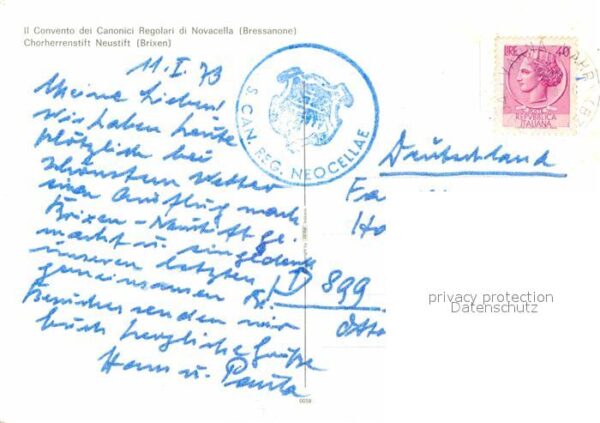 Il Convento dei Canonici Regolari di Novacella (Bressanone)
Chorherrenstift Neustift (Brixen)
11. I. 73
Meine Lieben!
Wir haben heute
plötzlich bei
schönstem Wetter
einen Ausflug nach
Brixen-Neustift ge-
macht u. eingedenk
unseres letzten
gemeinsamen
Besuches senden wir
Euch herzliche Grüße
Hans u. Paula
S. CAN. REG. NEOCELLAE
LIRE 40
POSTE
REPVBBLICA
ITALIANA
Deutschland
Fa
Ho
D 899
Otto
privacy protection
Datenschutz
0058